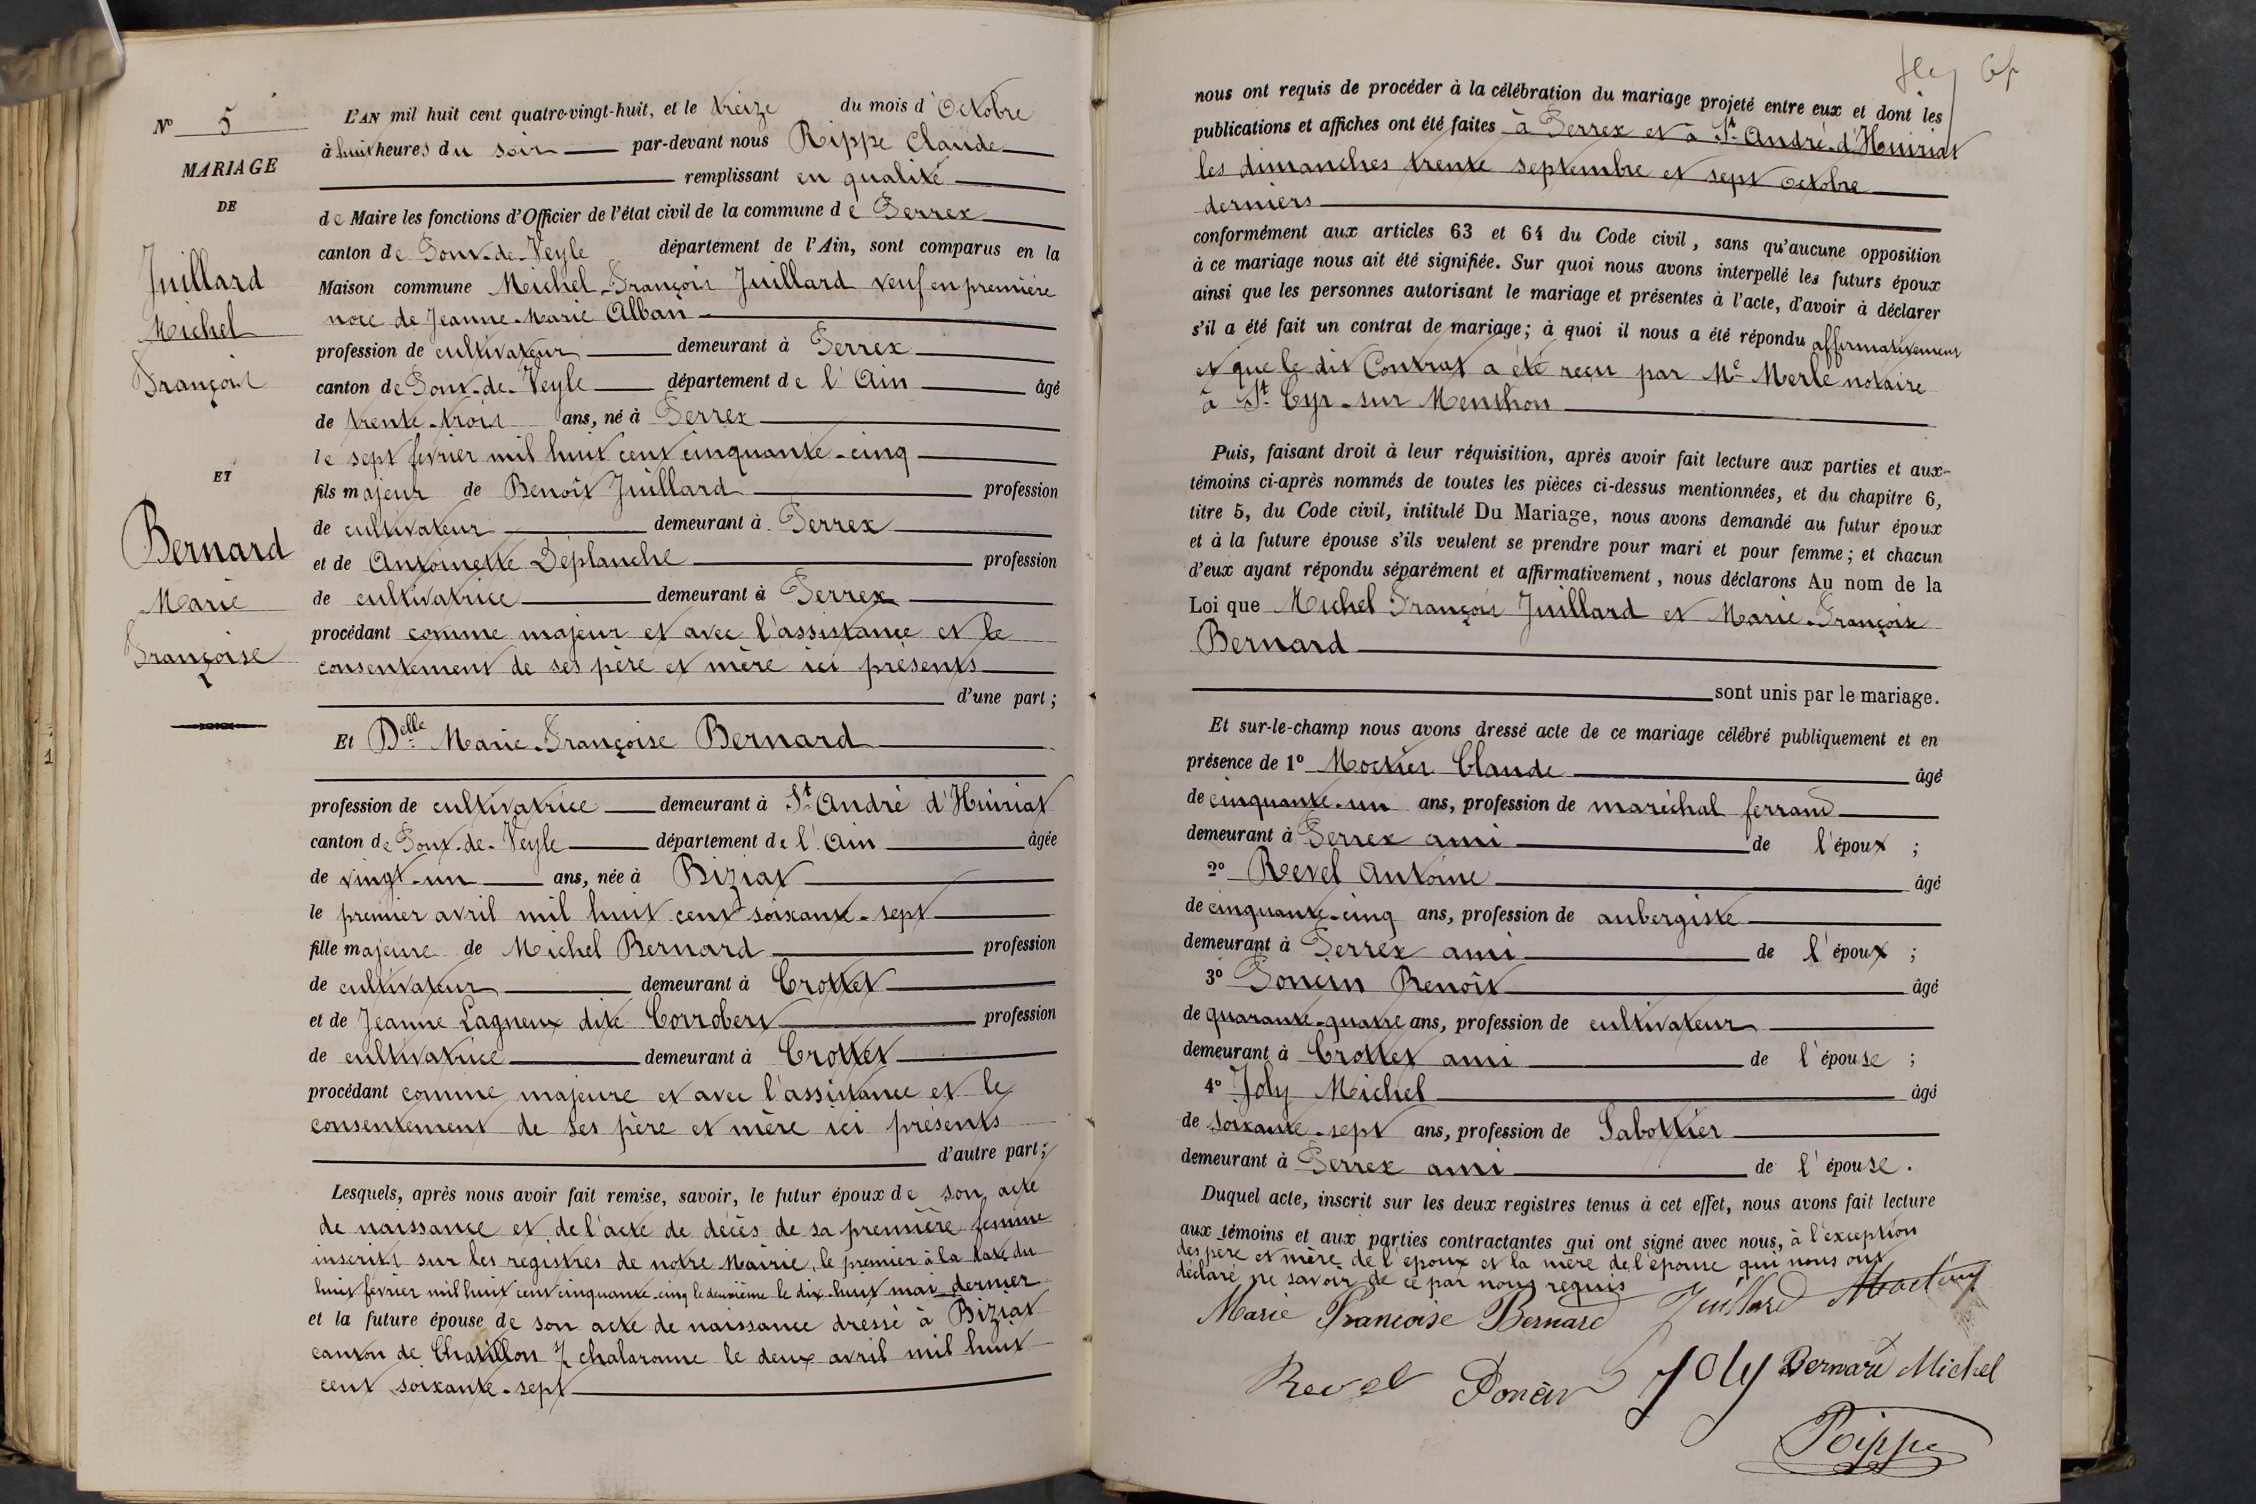 N° 5
MARIAGE
DE
Juillard
Michel
François
ET
Bernard
Marie
Françoise
L'AN mil huit cent quatre-vingt-huit, et le treize du mois d'Octobre
à huit heures du soir par-devant nous Rippe Claude
remplissant en qualité
de Maire les fonctions d'Officier de l'état civil de la commune de Perrex
canton de Pont-de-Veyle département de l'Ain, sont comparus en la
Maison commune Michel-François Juillard veuf en première
noce de Jeanne-Marie Alban
profession de cultivateur demeurant à Perrex
canton de Pont-de-Veyle département de l'Ain âgé
de trente-trois ans, né à Perrex
le sept février mil huit cent cinquante-cinq
fils majeur de Benoît Juillard profession
de cultivateur demeurant à Perrex
et de Antoinette Déplanche profession
de cultivatrice demeurant à Perrex
procédant comme majeur et avec l'assistance et le
consentement de ses père et mère ici présents
d'une part;
Et Delle Marie-Françoise Bernard
profession de cultivatrice demeurant à St André d'Huiriat
canton de Pont-de-Veyle département de l'Ain âgée
de vingt-un ans, née à Biziat
le premier avril mil huit cent soixante-sept
fille majeure de Michel Bernard profession
de cultivateur demeurant à Crottet
et de Jeanne Lagneux dite Corrobert profession
de cultivatrice demeurant à Crottet
procédant comme majeure et avec l'assistance et le
consentement de ses père et mère ici présents
d'autre part;
Lesquels, après nous avoir fait remise, savoir, le futur époux de son acte
de naissance et de l'acte de décès de sa première femme
inscrits sur les registres de notre Mairie, le premier à la date du
huit février mil huit cent cinquante-cinq le deuxième le dix-huit mai dernier
et la future épouse de son acte de naissance dressé à Biziat
canton de Chatillon chalaronne le deux avril mil huit
cent soixante-sept
nous ont requis de procéder à la célébration du mariage projeté entre eux et dont les
publications et affiches ont été faites à Perrex et à St André-d'Huiriat
les dimanches trente septembre et sept octobre
derniers
conformément aux articles 63 et 64 du Code civil, sans qu'aucune opposition
à ce mariage nous ait été signifiée. Sur quoi nous avons interpellé les futurs époux
ainsi que les personnes autorisant le mariage et présentes à l'acte, d'avoir à déclarer
s'il a été fait un contrat de mariage; à quoi il nous a été répondu affirmativement
et que le dit Contrat a été reçu par Me Merle notaire
à St Cyr-sur Menthon
Puis, faisant droit à leur réquisition, après avoir fait lecture aux parties et aux-
témoins ci-après nommés de toutes les pièces ci-dessus mentionnées, et du chapitre 6,
titre 5, du Code civil, intitulé Du Mariage, nous avons demandé au futur époux
et à la future épouse s'ils veulent se prendre pour mari et pour femme; et chacun
d'eux ayant répondu séparément et affirmativement, nous déclarons Au nom de la
Loi que Michel François Juillard et Marie-Françoise
Bernard
sont unis par le mariage.
Et sur-le-champ nous avons dressé acte de ce mariage célébré publiquement et en
présence de 1° Moctier Claude âgé
de cinquante-un ans, profession de maréchal ferrand
demeurant à Perrex ami de l'époux;
2° Revel Antoine âgé
de cinquante-cinq ans, profession de aubergiste
demeurant à Perrex ami de l'époux;
3° Poncin Benoît âgé
de quarante-quatre ans, profession de cultivateur
demeurant à Crottet ami de l'épouse;
4° Joly Michel âgé
de soixante-sept ans, profession de Sabottier
demeurant à Perrex ami de l'épouse.
Duquel acte, inscrit sur les deux registres tenus à cet effet, nous avons fait lecture
aux témoins et aux parties contractantes qui ont signé avec nous, à l'exception
des père et mère de l'époux et la mère de l'épouse qui nous ont
déclaré ne savoir de ce par nous requis
Marie Francoise Bernard Juillard
Revel Poncin Joly Bernard Michel
Rippe